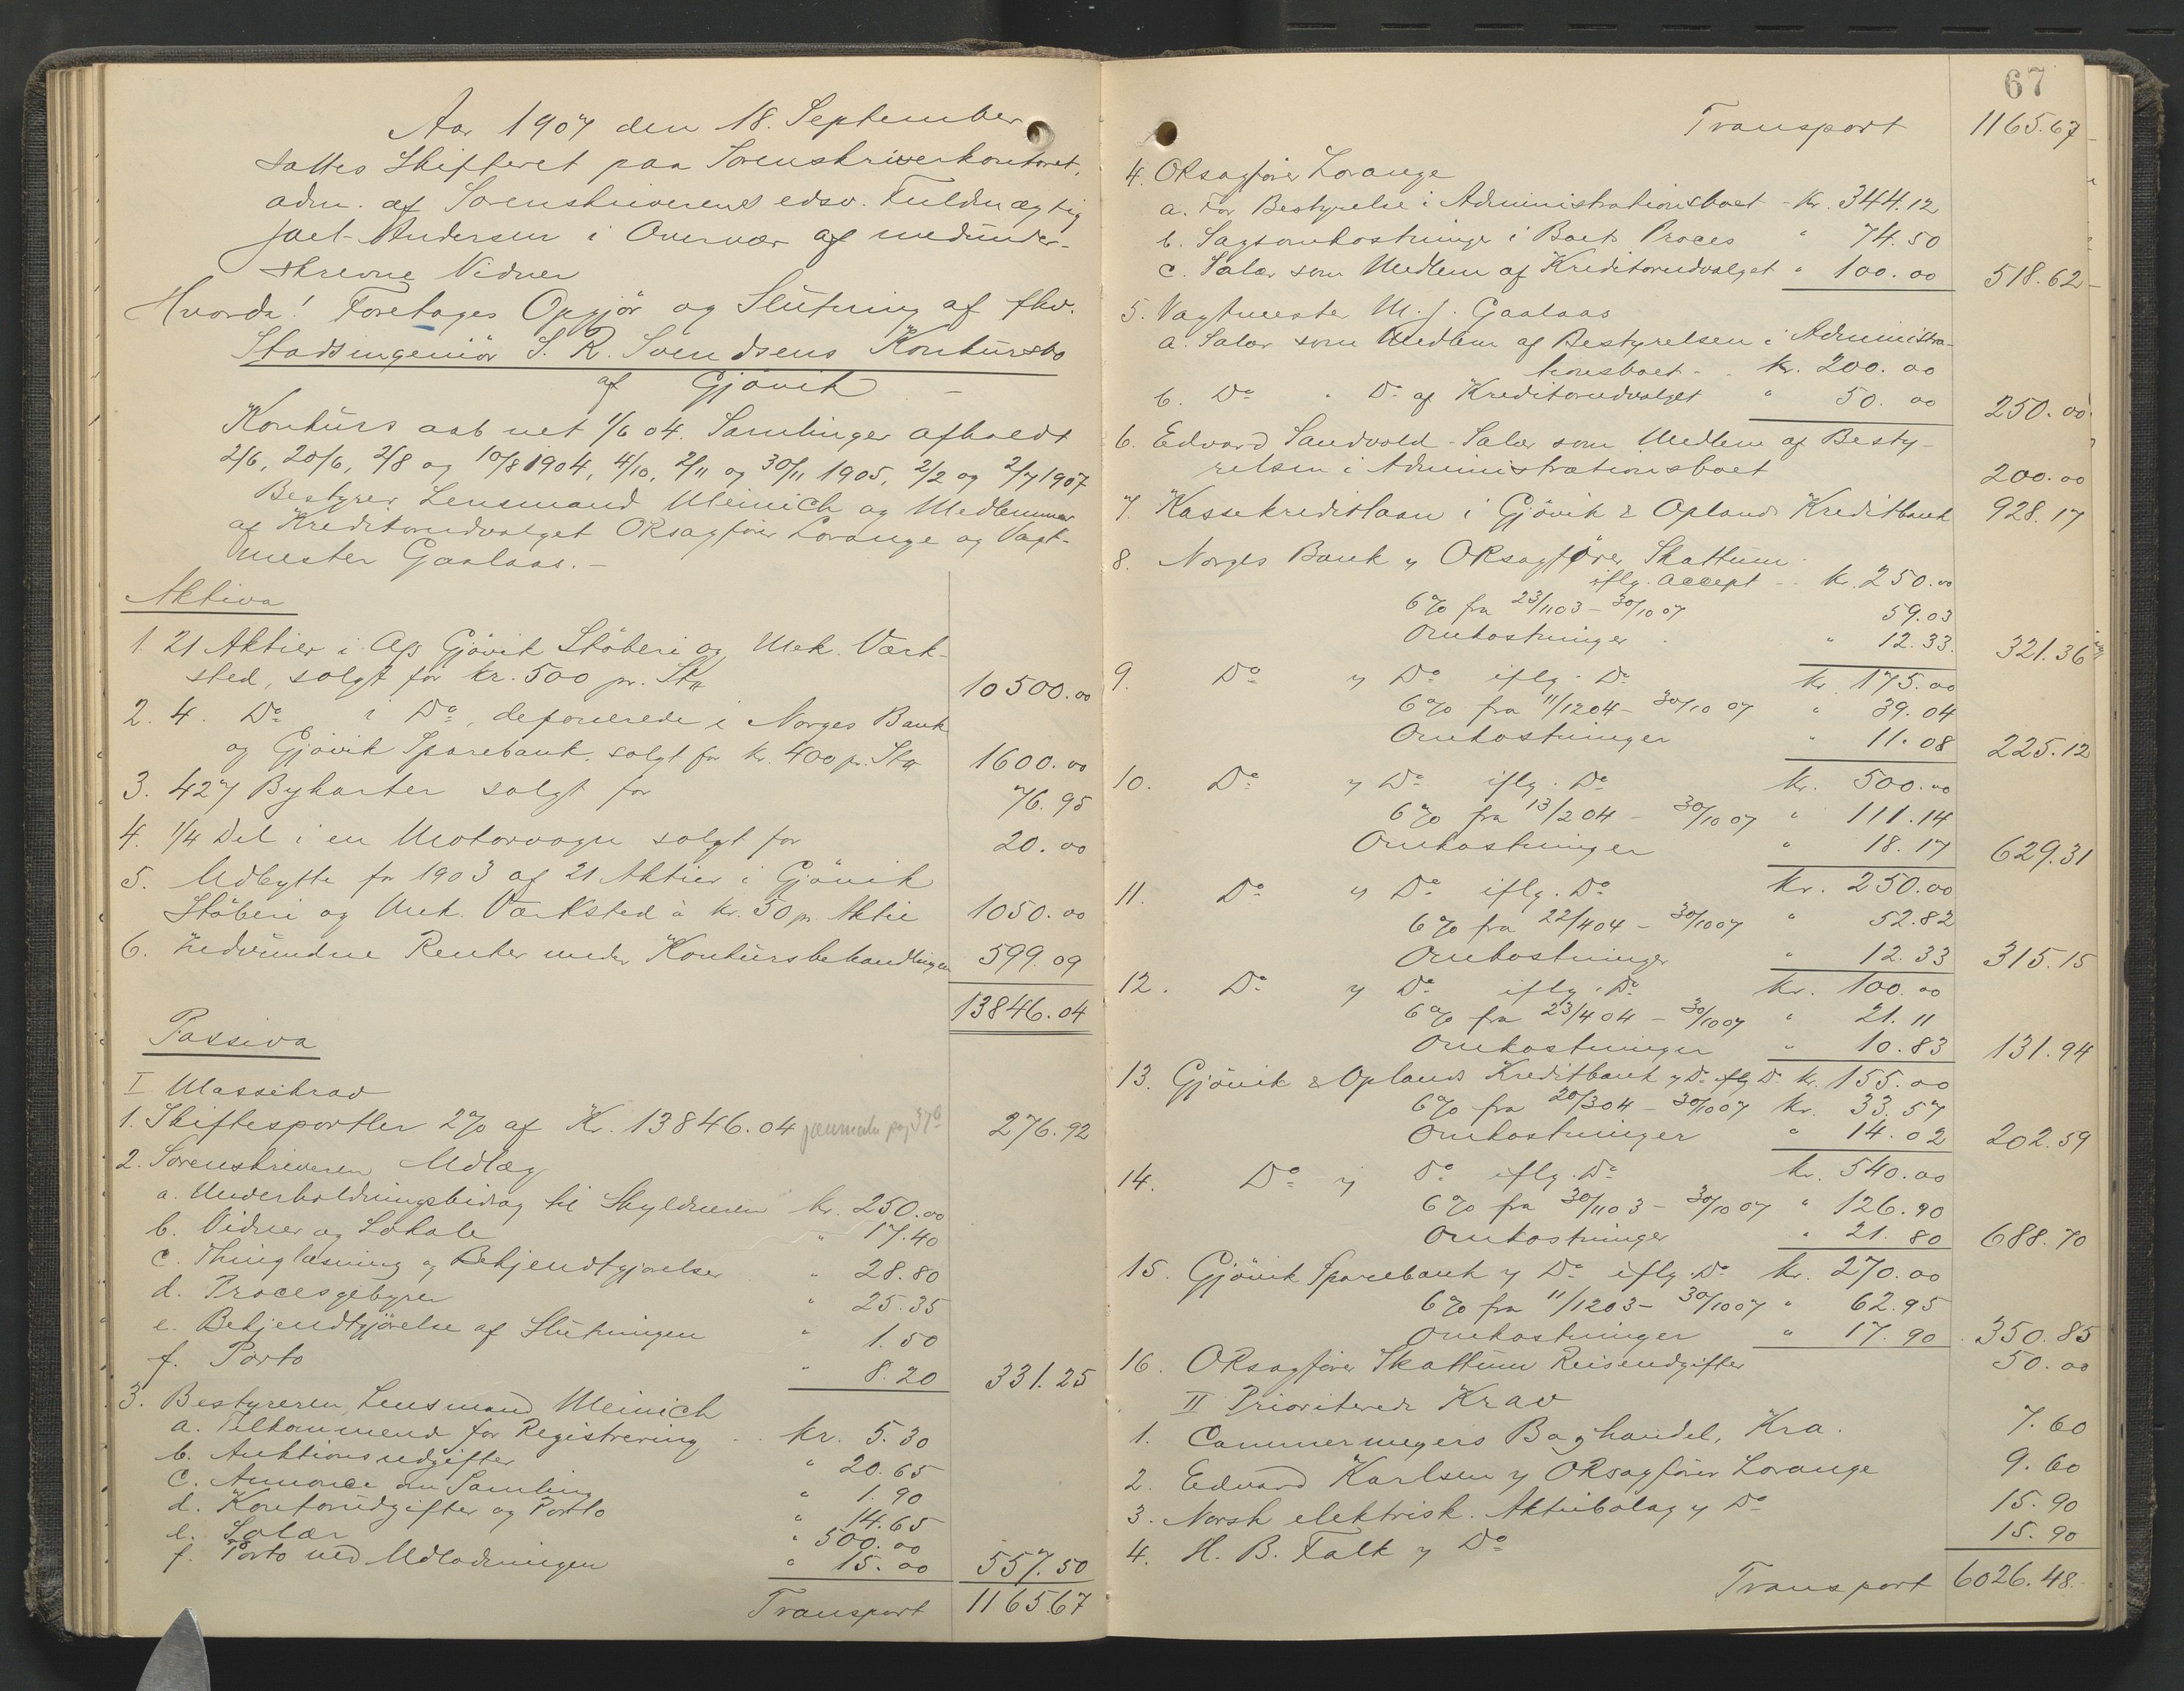 Aar 1907 den 18. September
sattes Skifteret paa Sorenskriverkontoret,
adm. af Sorenskriverens edsv. Fuldmægtig
Joel-Andersen i Overvær af medunder-
skrevne Vidner
Hvorda! Foretages Opgjör og Slutning af fhv.
Stadsingeniör S. R. Svendsens Konkursbo
af Gjövik
Konkurs aabnet 1/6 04. Samlinger afholdt
2/6, 20/6, 2/8 og 10/8 1904, 4/10, 2/11 og 30/11 1905, 2/2 og 2/7 1907
Bestyrer Lensmand Meinich og Medlemmer
af Kreditorudvalget ORsagfører Lorange og Vagt-
mester Gaalaas. -
Aktiva
1. 21 Aktier i A/S Gjövik Stöberi og Mek. Værk-
sted, solgt for kr. 500 pr. Stk 10500.00
2. 4. Do i Do, deponerede i Norges Bank
og Gjövik Sparebank, solgt for kr. 400 pr. Stk 1600.00
3. 427 Bykarter solgt for 76.95
4. 1/4 Del i en Motorvogn solgt for 20.00
5. Udbytte for 1903 af 21 Aktier i Gjövik
Stöberi og Mek. Værksted à kr. 50 pr. Aktie 1050.00
6. Indvundne Renter under Konkursbehandlingen 599.09
13846.04
Passiva
I Massekrav
1. Skiftesportler 2% af Kr. 13846.04 276.92
2. Sorenskriveren Udlæg
a. Underholdningsbidrag til Skyldneren kr. 250.00
b. Vidner og Lokale " 17.40
c. Thinglæsning og Bekjendtgjørelser " 28.80
d. Procesgebyrer " 25.35
e. Bekjendtgjörelse af Slutningen " 1.50
f. Porto " 8.20 331.25
3. Bestyreren, Lensmand Meinich
a. Tilkommend for Registrering kr. 5.30
b. Auktionsudgifter " 20.65
c. Annonce om Samling " 1.90
d. Kontorudgifter og Porto " 14.65
e. Salær " 500.00
f. Porto ved Udlodningen " 15.00 557.50
Transport 1165.67
67
Transport 1165.67
4. ORsagfører Lorange
a. For Bestyrelse i Administrationsboet - Kr. 344.12
b. Sagsomkostninger i Boets Proces " 74.50
c. Salær som Medlem af Kreditorudvalget " 100.00 518.62
5. Vagtmester M. J. Gaalaas
a. Salær som Medlem af Bestyrelsen i Administra-
tionsboet - kr. 200.00
b. Do Do af Kreditorudvalget " 50.00 250.00
6. Edvard Sandvold - Salær som Medlem af Besty-
relsen i Administrationsboet 200.00
7. Kassekreditlaan i Gjövik & Oplands Kreditbank 928.17
8. Norges Bank v ORsagfører Skattum
iflg. accept kr. 250.00
6% fra 23/11 03 - 30/10 07 59.03
Omkostninger " 12.33 321.36
9. Do v Do iflg. Do kr. 175.00
6% fra 11/12 04 - 30/10 07 " 39.04
Omkostninger " 11.08 225.12
10. Do v Do iflg. Do kr. 500.00
6% fra 13/2 04 - 30/10 07 " 111.14
Omkostninger " 18.17 629.31
11. Do v Do iflg. Do kr. 250.00
6% fra 22/4 04 - 30/10 07 " 52.82
Omkostninger " 12.33 315.15
12. Do v Do iflg. Do kr. 100.00
6% fra 23/4 04 - 30/10 07 " 21.11
Omkostninger " 10.83 131.94
13. Gjövik & Oplands Kreditbank v Do iflg Do kr. 155.00
6% fra 20/3 04 - 30/10 07 kr. 33.57
Omkostninger " 14.02 202.59
14. Do v Do iflg. Do kr. 540.00
6% fra 30/11 03 - 30/10 07 " 126.90
Omkostninger " 21.80 688.70
15. Gjövik Sparebank v Do iflg. Do kr. 270.00
6% fra 11/12 03 - 30/10 07 " 62.95
Omkostninger " 17.90 350.85
16. ORsagfører Skattum Reiseudgifter 50.00
II Prioriterede Krav
1. Cammermeyers Boghandel, Kra. 7.60
2. Edvard Karlsen v ORsagfører Lorange 9.60
3. Norsk elektrisk. Aktiebolag v Do 15.90
4. H. B. Falk v Do 15.90
Transport 6026.48